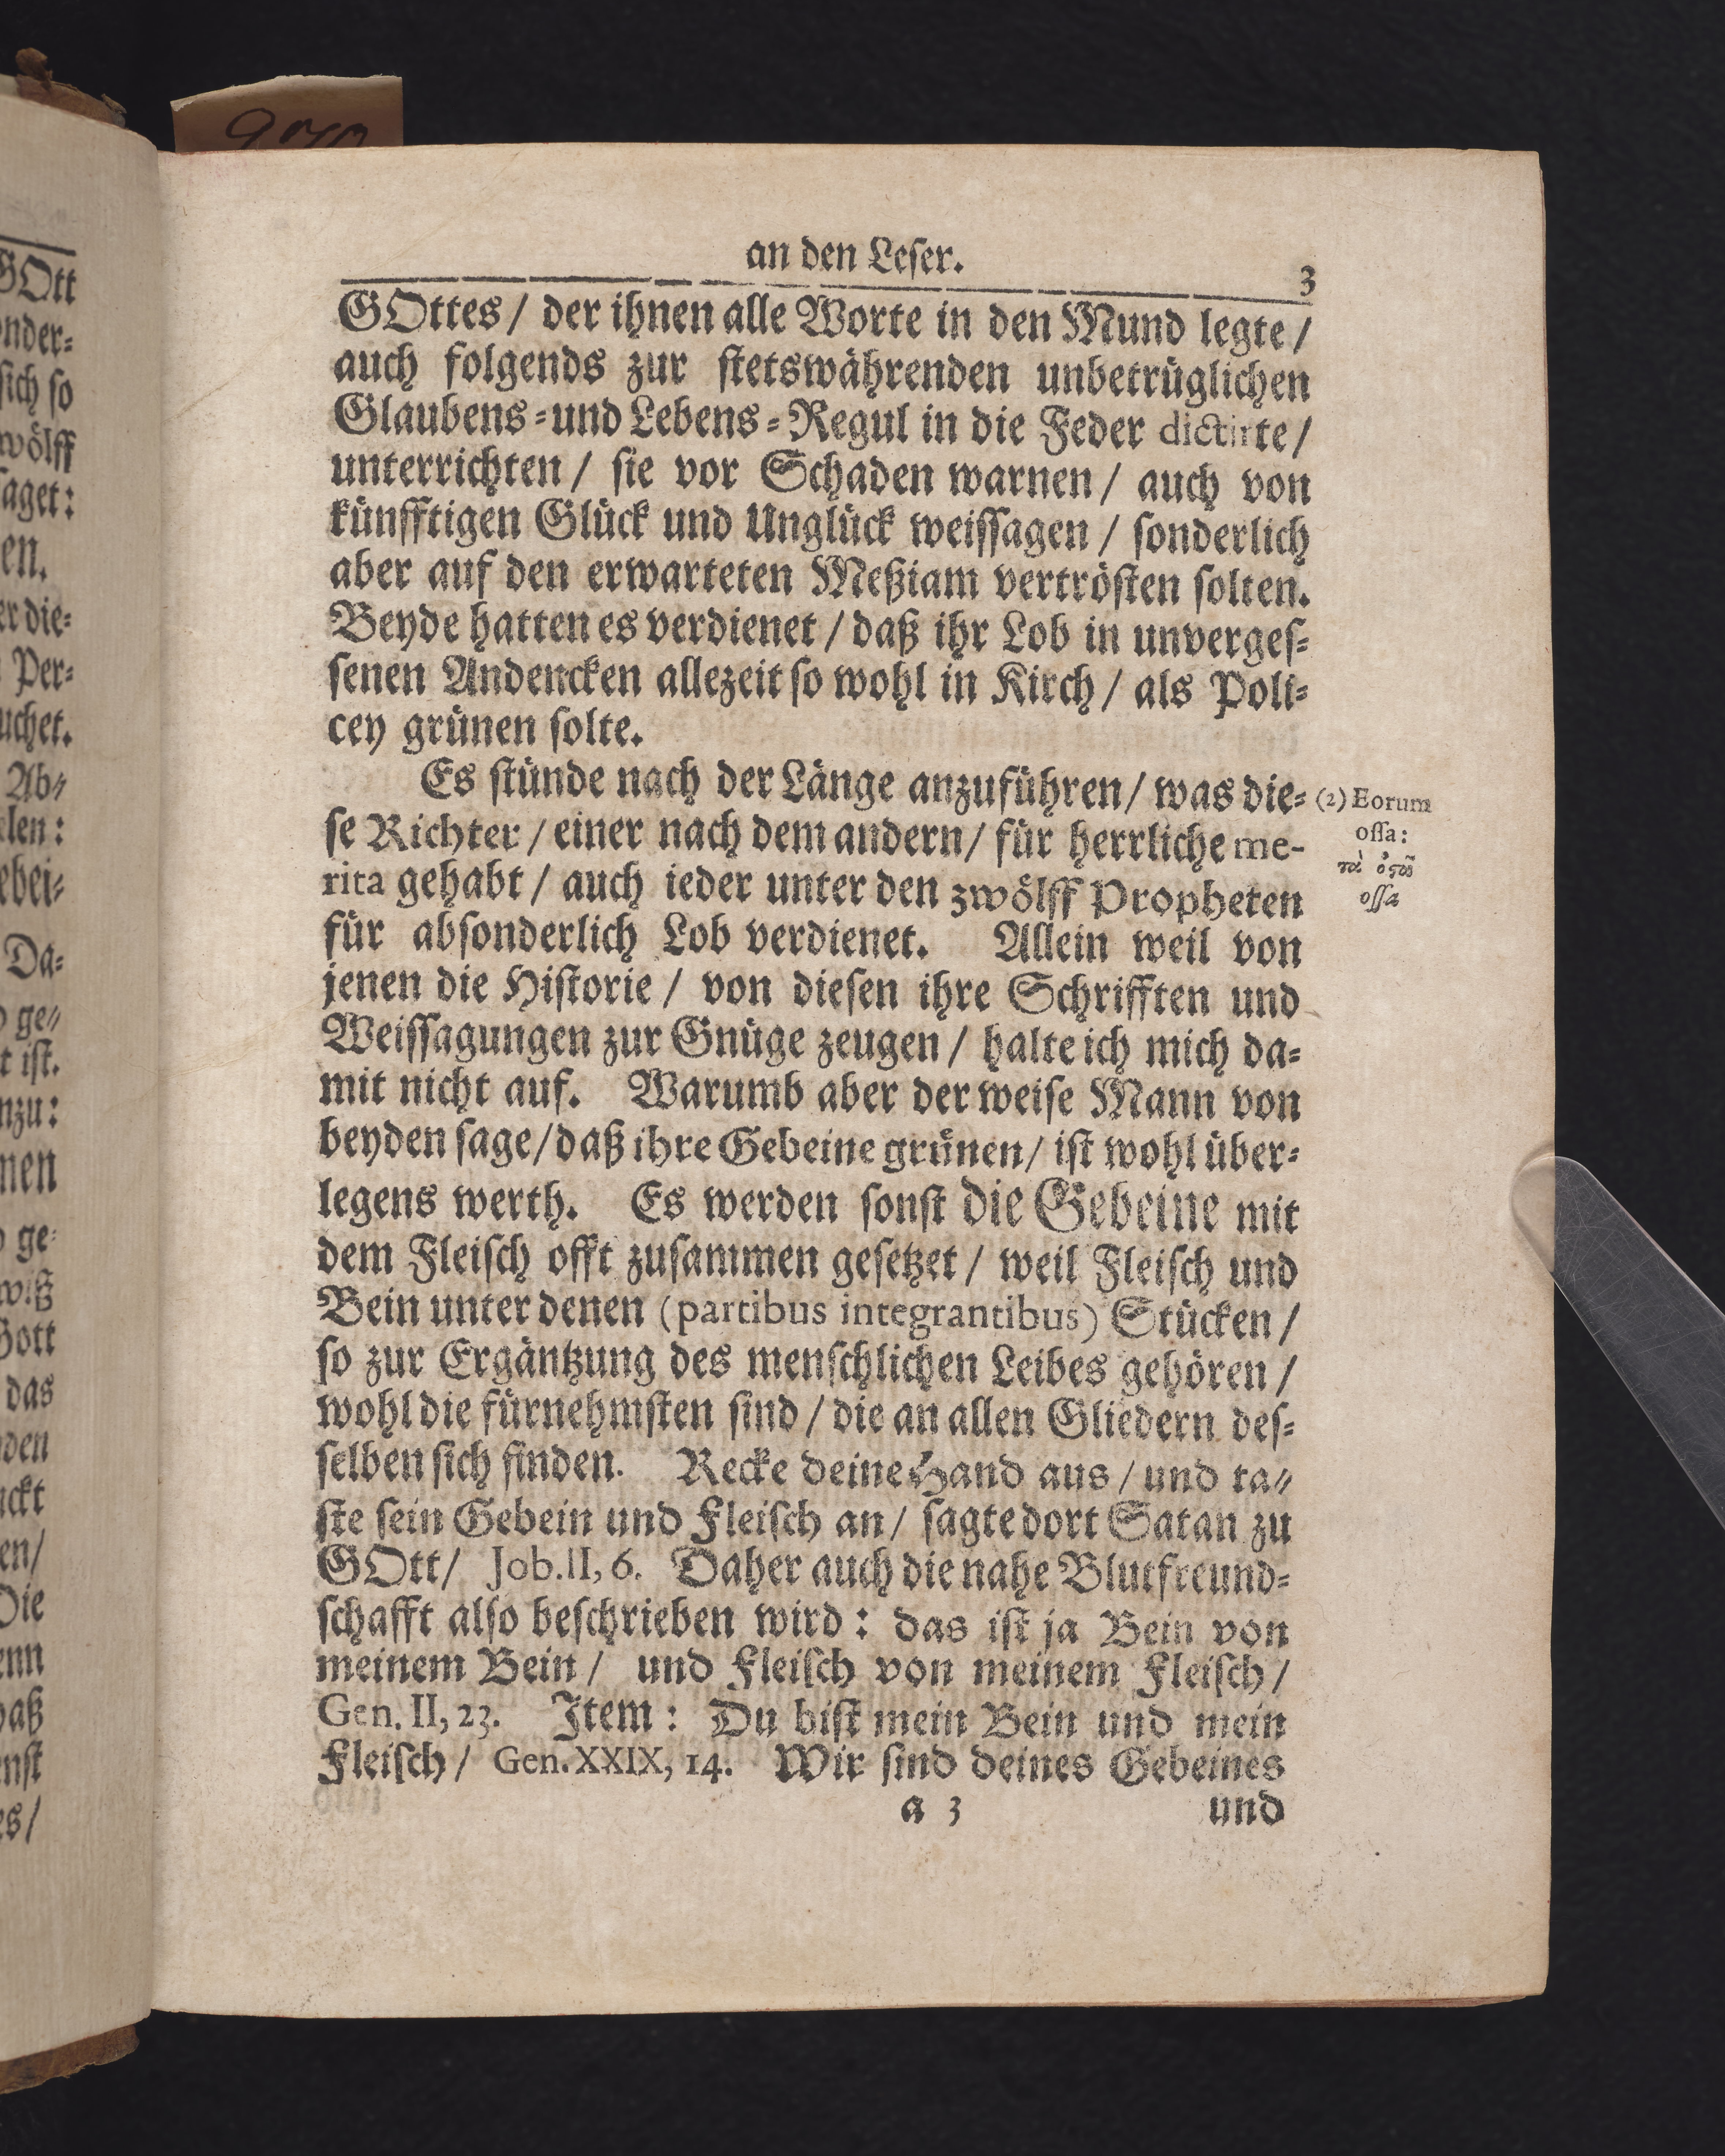 an den Leſer.
3
GOttes / der ihnen alle Worte in den Mund legte /
auch folgends zur ſtetswährenden unbetrüglichen
Glaubens-und Lebens-Regul in die Feder dictirte /
unterrichten / ſie vor Schaden warnen / auch von
künfftigen Glück und Unglück weiſſagen / ſonderlich
aber auf den erwarteten Meßiam vertröſten ſolten.
Beyde hatten es verdienet / daß ihr Lob in unvergeſ-
ſenen Andencken allezeit ſo wohl in Kirch / als Poli-
cey grünen ſolte.
Es ſtünde nach der Länge anzuführen / was die-
ſe Richter / einer nach dem andern / für herrliche me-
rita gehabt / auch ieder unter den zwölff Propheten
für abſonderlich Lob verdienet. Allein weil von
jenen die Hiſtorie / von dieſen ihre Schrifften und
Weiſſagungen zur Gnüge zeugen / halte ich mich da-
mit nicht auf. Warumb aber der weiſe Mann von
beyden ſage / daß ihre Gebeine grünen / iſt wohl über-
legens werth. Es werden ſonſt die Gebeine mit
dem Fleiſch offt zuſammen geſetzet / weil Fleiſch und
Bein unter denen (partibus integrantibus) Stücken /
ſo zur Ergäntzung des menſchlichen Leibes gehören /
wohl die fürnehmſten ſind / die an allen Gliedern deſ-
ſelben ſich finden. Recke deine Hand aus / und ta-
ſte ſein Gebein und Fleiſch an / ſagte dort Satan zu
GOtt / Job. II, 6. Daher auch die nahe Blutfreund-
ſchafft alſo beſchrieben wird : das iſt ja Bein von
meinem Bein / und Fleiſch von meinem Fleiſch /
Gen. II, 23. Item : Du biſt mein Bein und mein
Fleiſch / Gen. XXIX, 14. Wir ſind deines Gebeines
a 3 und
(2) Eorum
oſſa:
τὰ ὀστᾶ
oſſa
GOtt
onder-
ſich ſo
wölff
ſaget:
en.
er die-
Per-
uchet.
Ab-
len:
ebei-
Da-
ge-
t iſt.
nzu:
nen
ge-
wiß
Gott
das
den
uckt
en/
Die
enn
daß
nſt
es/